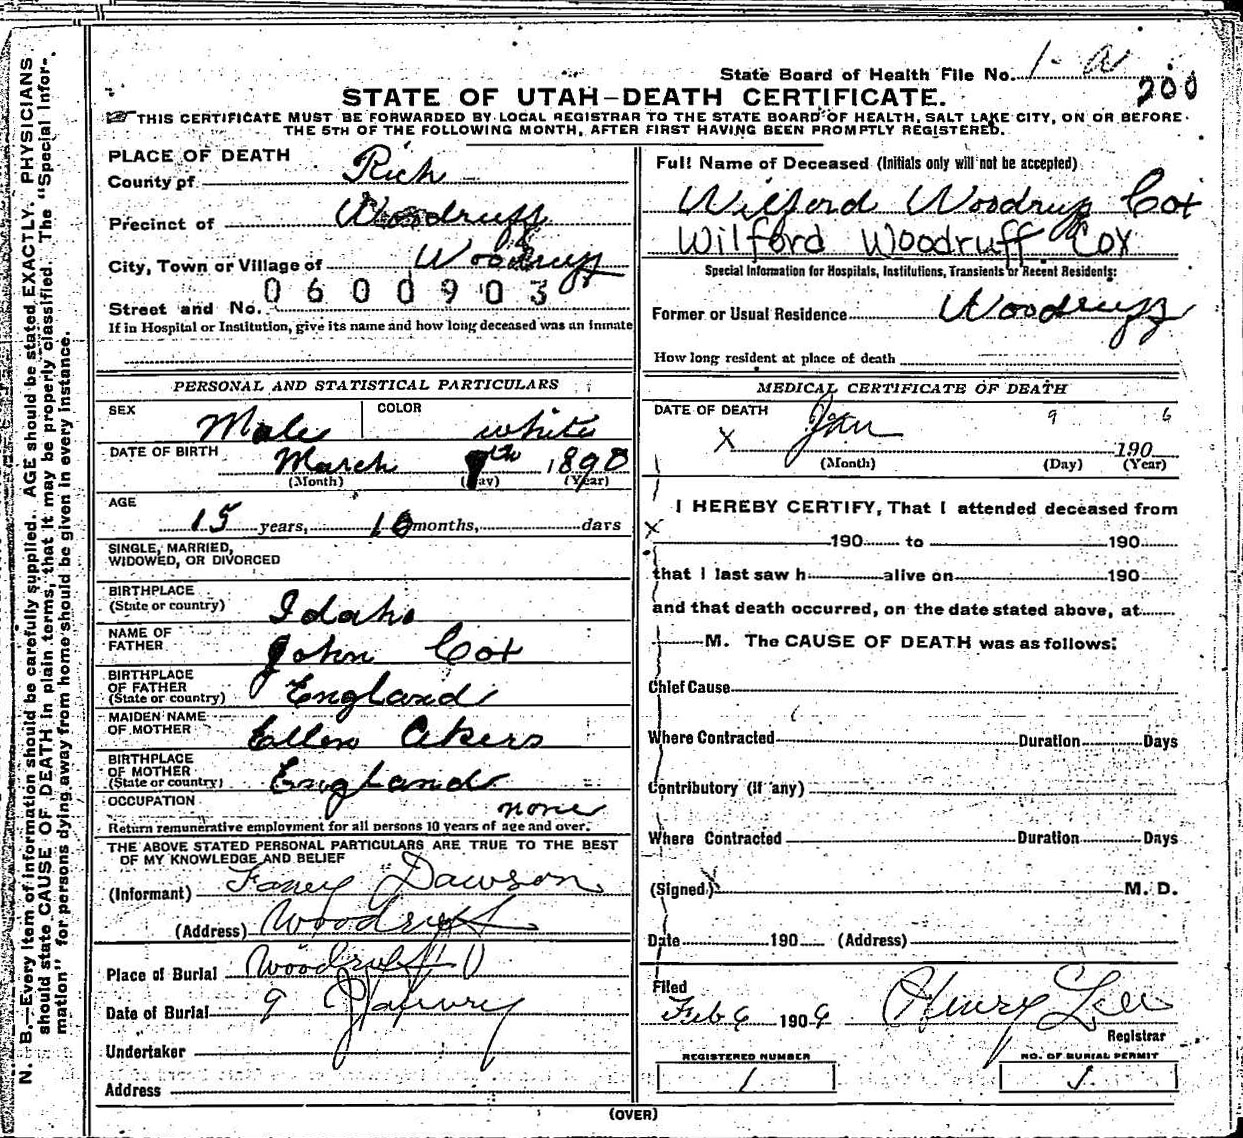 State Board of Health File No. 1-a
200
STATE OF UTAH—DEATH CERTIFICATE.
THIS CERTIFICATE MUST BE FORWARDED BY LOCAL REGISTRAR TO THE STATE BOARD OF HEALTH, SALT LAKE CITY, ON OR BEFORE
THE 5TH OF THE FOLLOWING MONTH, AFTER FIRST HAVING BEEN PROMPTLY REGISTERED.
N. B.—Every item of information should be carefully supplied. AGE should be stated EXACTLY. PHYSICIANS
should state CAUSE OF DEATH in plain terms, that it may be properly classified. The "Special Infor-
mation" for persons dying away from home should be given in every instance.
PLACE OF DEATH
County of Rich
Precinct of Woodruff
City, Town or Village of Woodruff
0600903
Street and No.
If in Hospital or Institution, give its name and how long deceased was an inmate
PERSONAL AND STATISTICAL PARTICULARS
SEX Male COLOR white
DATE OF BIRTH March 9th, 1890
(Month) (Day) (Year)
AGE
15 years, 10 months, days
SINGLE, MARRIED,
WIDOWED, OR DIVORCED
BIRTHPLACE
(State or country) Idaho
NAME OF
FATHER John Cox
BIRTHPLACE
OF FATHER
(State or country) England
MAIDEN NAME
OF MOTHER Ellen Akers
BIRTHPLACE
OF MOTHER
(State or country) England
OCCUPATION none
Return remunerative employment for all persons 10 years of age and over.
THE ABOVE STATED PERSONAL PARTICULARS ARE TRUE TO THE BEST
OF MY KNOWLEDGE AND BELIEF
(Informant) Dawson
(Address) Woodruff
Place of Burial Woodruff U
Date of Burial 9 January
Undertaker
Address
Full Name of Deceased (Initials only will not be accepted)
Wilford Woodruff Cox
Wilford Woodruff Cox
Special Information for Hospitals, Institutions, Transients or Recent Residents:
Former or Usual Residence Woodruff
How long resident at place of death
MEDICAL CERTIFICATE OF DEATH
DATE OF DEATH
X Jan 9 1906
(Month) (Day) (Year)
I HEREBY CERTIFY, That I attended deceased from
X
190 to 190
that I last saw h alive on 190
and that death occurred, on the date stated above, at
M. The CAUSE OF DEATH was as follows:
Chief Cause
Where Contracted Duration Days
Contributory (if any)
Where Contracted Duration Days
(Signed) X M. D.
Date 190 (Address)
Filed
Feb 6 1906 Henry Lee
Registrar
REGISTERED NUMBER NO. OF BURIAL PERMIT
1 1
(OVER)